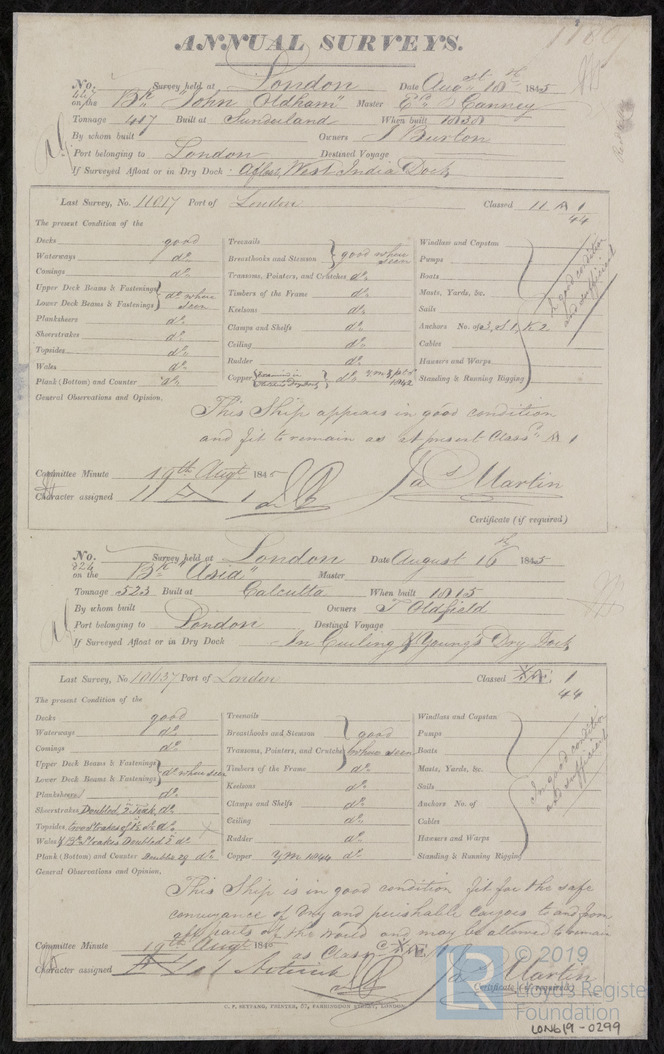 ANNUAL SURVEYS.
No. 447 Survey held at London Date Augst 18th 1845
on the Bk "John Oldham" Master
Tonnage 417 Built at Sunderland When built 1838
By whom built Owners J Burton
Port belonging to London Destined Voyage
If Surveyed Afloat or in Dry Dock Afloat West India Dock
Last Survey, No. 11017 Port of London Classed 11 A 1
44
The present Condition of the
Decks good
Waterways do
Comings do
Upper Deck Beams & Fastenings
Lower Deck Beams & Fastenings } do when seen
Plansheers do
Sheerstrakes do
Topsides do
Wales do
Plank (Bottom) and Counter do
Treenails
Breasthooks and Stemson } good when seen
Transoms, Pointers, and Crutches do
Timbers of the Frame do
Keelsons do
Clamps and Shelfs do
Ceiling do
Rudder do
Copper do 1842
Windlass and Capstan
Pumps
Boats
Masts, Yards, &c.
Sails
Anchors No. of 3, S 1, K 2
Cables
Hawsers and Warps
Standing & Running Rigging
In good condition and sufficient
General Observations and Opinion,
This Ship appears in good condition
and fit to remain as at present Classd A 1
Committee Minute 19th Augt 1845
Character assigned 11 A 1
Jas Martin
Certificate (if required)
No. 824 Survey held at London Date August 16th 1845
on the Bk "Asia" Master
Tonnage 523 Built at Calcutta When built 1815
By whom built Owners T Oldfield
Port belonging to London Destined Voyage
If Surveyed Afloat or in Dry Dock In Curling & Young's Dry Dock
Last Survey, No. 10637 Port of London Classed Æ 1
44
The present Condition of the
Decks good
Waterways do
Comings do
Upper Deck Beams & Fastenings
Lower Deck Beams & Fastenings } do when seen
Plansheers do
Sheerstrakes Doubled do
Topsides do
Wales Doubled do
Plank (Bottom) and Counter do
Treenails
Breasthooks and Stemson
Transoms, Pointers, and Crutches } good when seen
Timbers of the Frame do
Keelsons do
Clamps and Shelfs do
Ceiling do
Rudder do
Copper Y.M. 1844 do
Windlass and Capstan
Pumps
Boats
Masts, Yards, &c.
Sails
Anchors No. of
Cables
Hawsers and Warps
Standing & Running Rigging
In good condition and sufficient
General Observations and Opinion,
This Ship is in good condition fit for the safe
conveyance of dry and perishable cargoes to and from
all parts of the World and may be allowed to remain
as Classd Æ 1
Committee Minute 19th Augt 1845
Character assigned
Jas Martin
Certificate (if required)
LONDON.
© 2019
Lloyd's Register
Foundation
LON619-0299